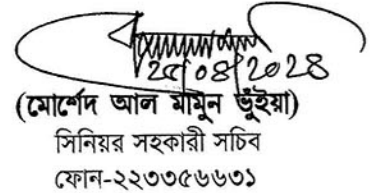 ২৫/০৪/২০২৪
(মোর্শেদ আল মামুন ভূঁইয়া)
সিনিয়র সহকারী সচিব
ফোন-২২৩৩৫৬৬৩১